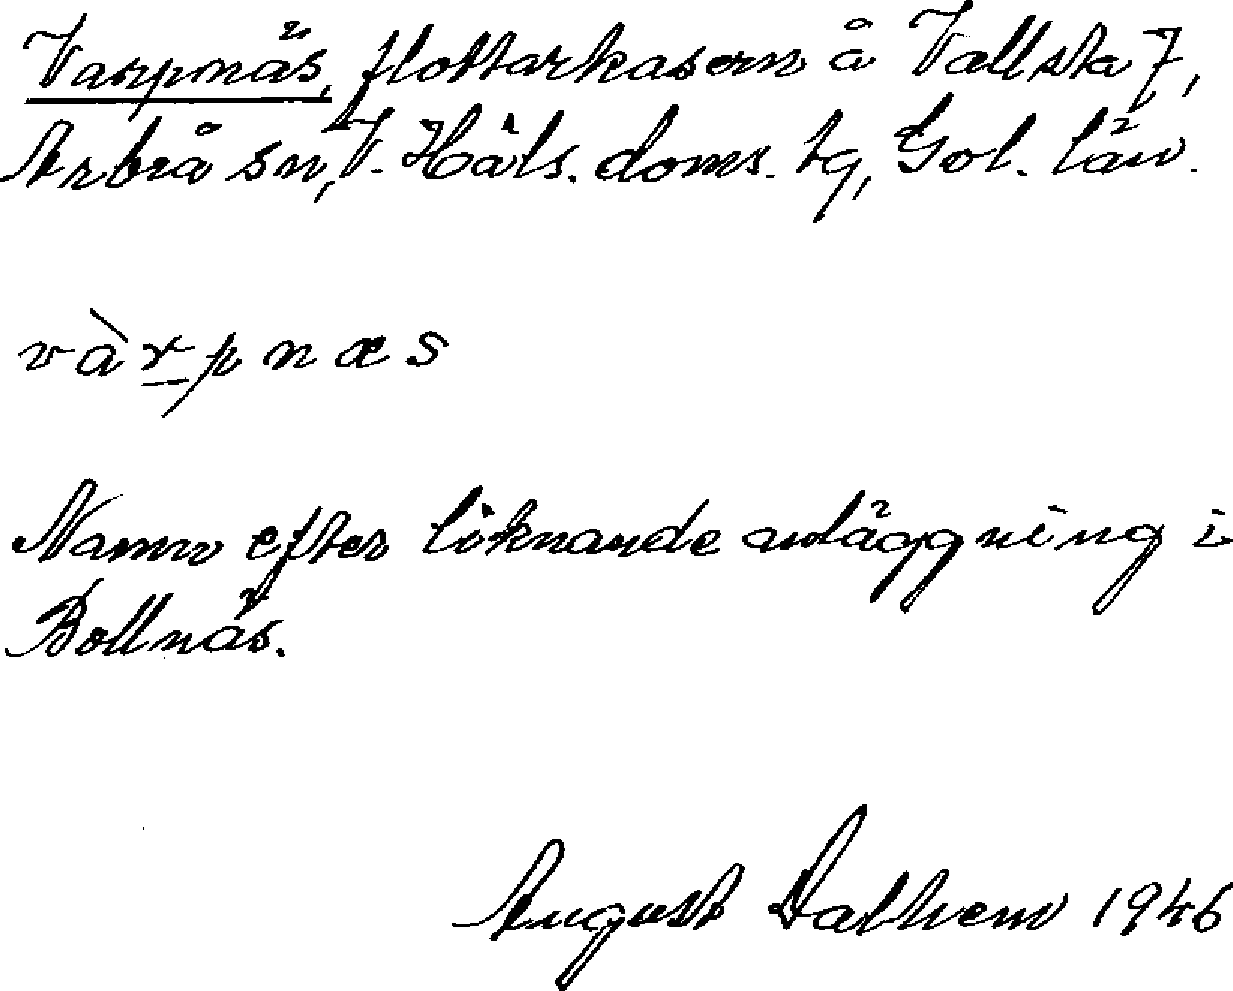 Varpnäs, flottarkasern å Vallsta 7,
Arbrå sn, V. Häls. doms. tg, Gvl. län.
vàr̲pnæs
Namn efter liknande anläggning i
Bollnäs.
August Dalhem 1946